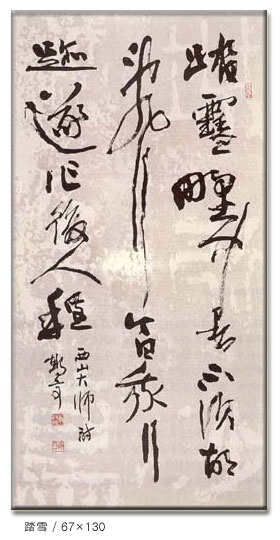 踏雪野中去不須胡
亂行今日我行
跡遂作後人程
西山大师詩
踏雪 / 67×130